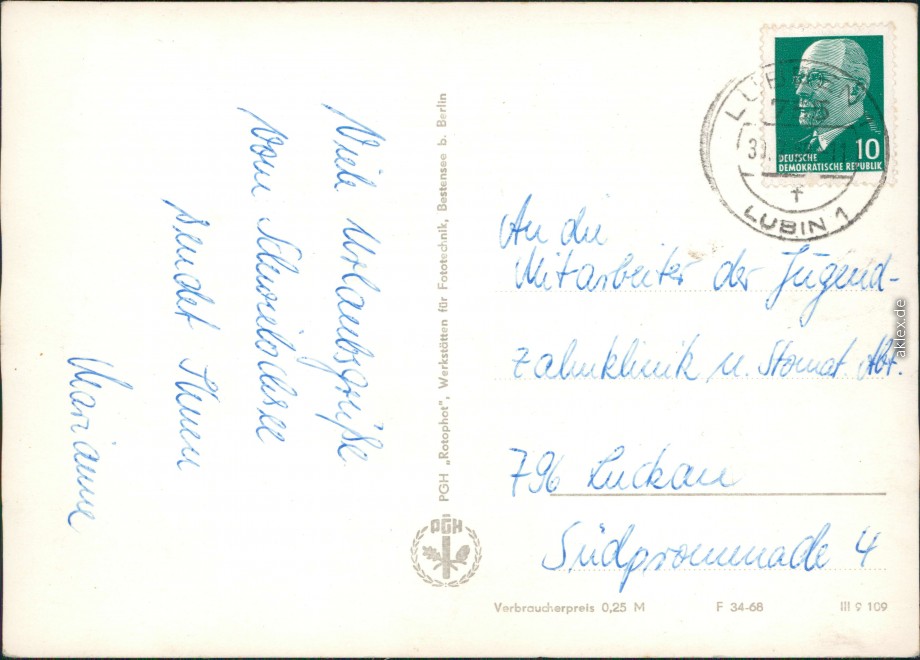 Viele Urlaubsgrüße
vom Schwielochsee
sendet Ihnen
Marianne
PGH „Rotophot", Werkstätten für Fototechnik, Bestensee b. Berlin
PGH
DEUTSCHE
DEMOKRATISCHE REPUBLIK
10
LUBIN 1
An die
Mitarbeiter der Jugend-
zahnklinik u. Stomat. Abt.
796 Luckau
Südpromenade 4
Verbraucherpreis 0,25 M F 34-68 III 9 109
aklex.de